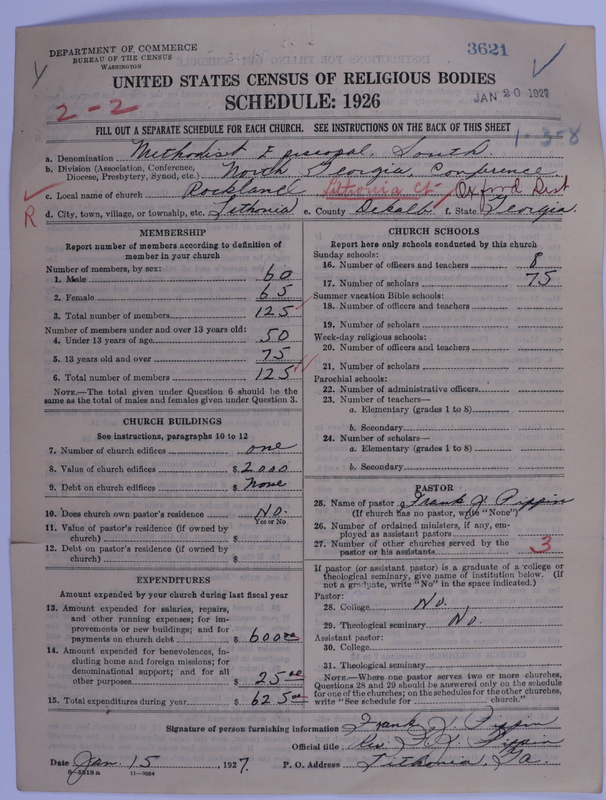 DEPARTMENT OF COMMERCE
BUREAU OF THE CENSUS
WASHINGTON
3621
JAN 20 1927
UNITED STATES CENSUS OF RELIGIOUS BODIES
2-2
SCHEDULE: 1926
FILL OUT A SEPARATE SCHEDULE FOR EACH CHURCH. SEE INSTRUCTIONS ON THE BACK OF THIS SHEET
1-3-8
a. Denomination Methodist Episcopal, South.
b. Division (Association, Conference, Diocese, Presbytery, Synod, etc.) North Georgia, Conference.
c. Local name of church Rockland Lithonia Ct. Oxford Dist
R
d. City, town, village, or township, etc. Lithonia e. County Dekalb f. State Georgia.
MEMBERSHIP
Report number of members according to definition of
member in your church
Number of members, by sex:
1. Male 60
2. Female 65
3. Total number of members 125
Number of members under and over 13 years old:
4. Under 13 years of age 50
5. 13 years old and over 75
6. Total number of members 125
NOTE.—The total given under Question 6 should be the
same as the total of males and females given under Question 3.
CHURCH BUILDINGS
See instructions, paragraphs 10 to 12
7. Number of church edifices one
8. Value of church edifices $2000
9. Debt on church edifices $ None
10. Does church own pastor's residence No.
Yes or No
11. Value of pastor's residence (if owned by
church) $
12. Debt on pastor's residence (if owned by
church) $
EXPENDITURES
Amount expended by your church during last fiscal year
13. Amount expended for salaries, repairs,
and other running expenses; for im-
provements or new buildings; and for
payments on church debt $ 600 00
14. Amount expended for benevolences, in-
cluding home and foreign missions; for
denominational support; and for all
other purposes $ 25 00
15. Total expenditures during year $ 625 00
CHURCH SCHOOLS
Report here only schools conducted by this church
Sunday schools:
16. Number of officers and teachers 8
17. Number of scholars 75
Summer vacation Bible schools:
18. Number of officers and teachers
19. Number of scholars
Week-day religious schools:
20. Number of officers and teachers
21. Number of scholars
Parochial schools:
22. Number of administrative officers
23. Number of teachers—
a. Elementary (grades 1 to 8)
b. Secondary
24. Number of scholars—
a. Elementary (grades 1 to 8)
b. Secondary
PASTOR
25. Name of pastor Frank J. Pippin
(If church has no pastor, write "None")
26. Number of ordained ministers, if any, em-
ployed as assistant pastors
27. Number of other churches served by the
pastor or his assistants 3
If pastor (or assistant pastor) is a graduate of a college or
theological seminary, give name of institution below. (If
not a graduate, write "No" in the space indicated.)
Pastor:
28. College No.
29. Theological seminary No.
Assistant pastor:
30. College
31. Theological seminary
NOTE.—Where one pastor serves two or more churches,
Questions 28 and 29 should be answered only on the schedule
for one of the churches; on the schedules for the other churches,
write "See schedule for church."
Signature of person furnishing information Frank J. Pippin
Official title Rev. F. J. Pippin
Date Jan. 15, 1927. P. O. Address Lithonia, Ga
11-9054